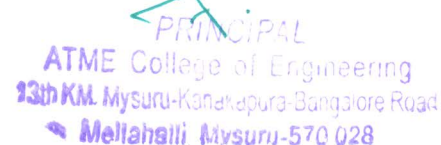 PRINCIPAL
ATME College of Engineering
13th KM. Mysuru-Kanakapura-Bangalore Road
Mellahalli Mysuru-570 028